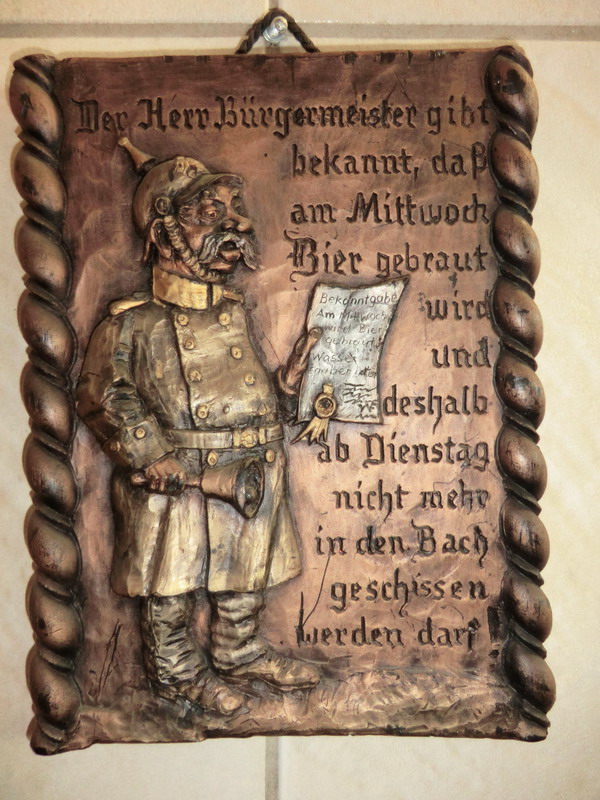 Der Herr Bürgermeister gibt
bekannt, daß
am Mittwoch
Bier gebraut
wird
und
deshalb
ab Dienstag
nicht mehr
in den Bach
geschissen
werden darf!
Bekanntgabe
Am Mittwoch
wird Bier
gebraut!
Wasser